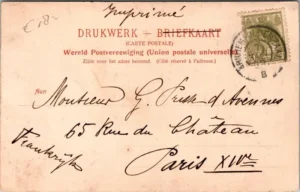 Imprimé
DRUKWERK — BRIEFKAART
(CARTE POSTALE)
Wereld Postvereeniging (Union postale universelle)
Zijde voor het adres bestemd. (Côté réservé à l'adresse.)
Aan
Monsieur G. d'Avennes
65 Rue du Château
Frankrijk
Paris XIVe